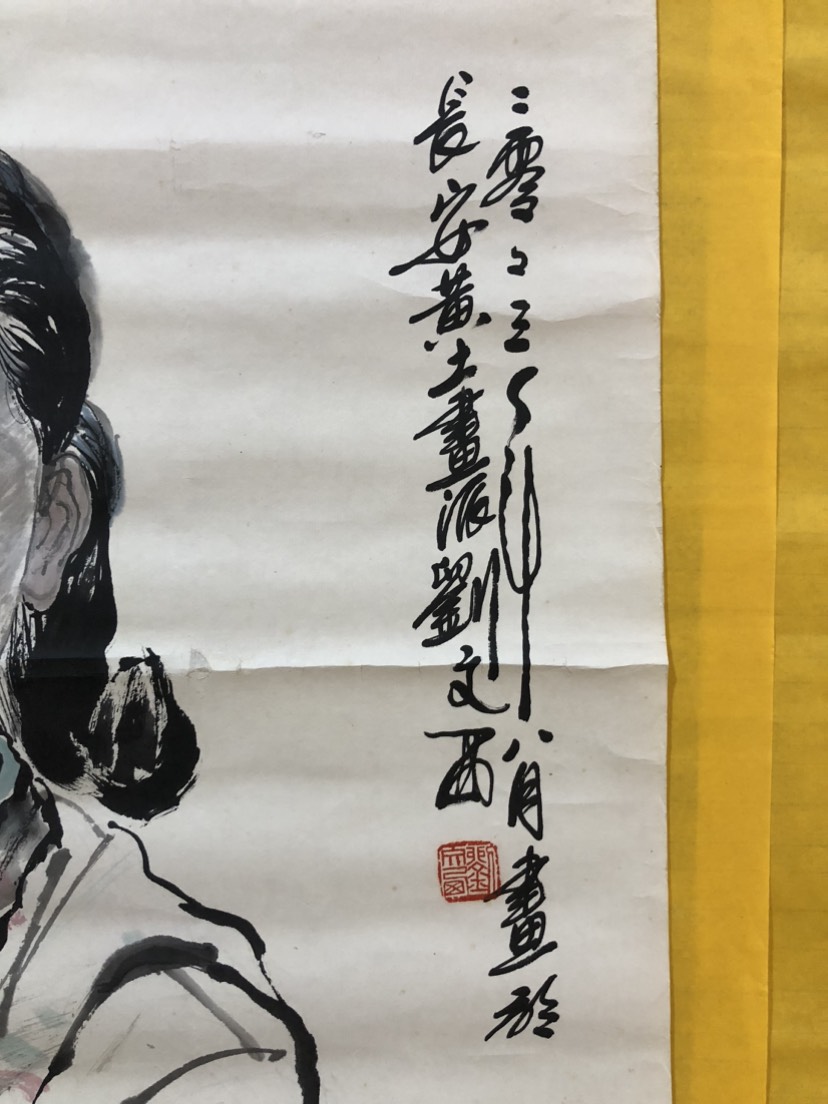 二零々三年八月畫於
長安黃土畫派劉文西
劉文西